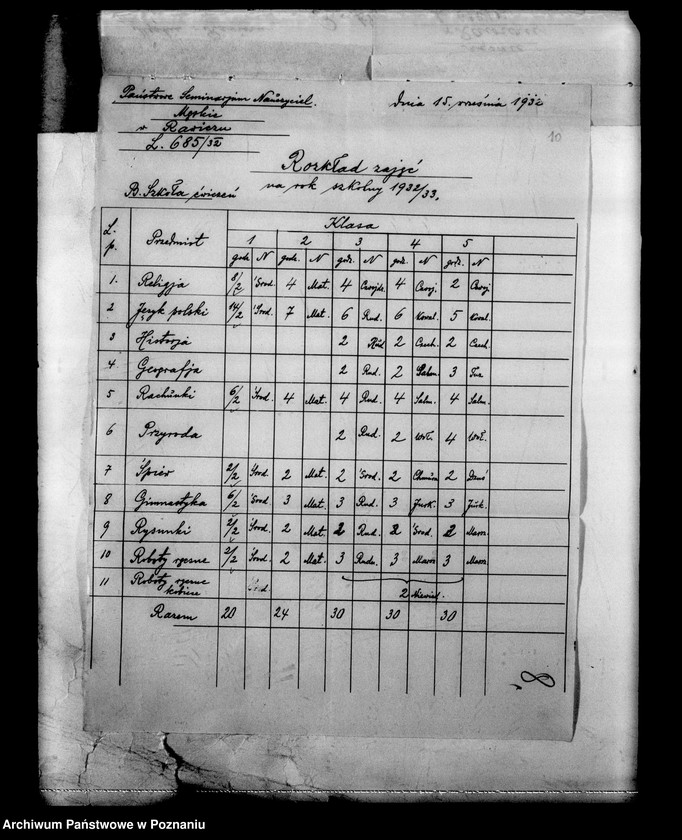 Państwowe Seminarjum Nauczyciel.
Męskie
w Rawiczu
L. 685/32
dnia 15. września 1932
10
Rozkład zajęć
na rok szkolny 1932/33.
B. Szkoła ćwiczeń
L. p. Przedmiot Klasa
1 2 3 4 5
godz. N godz. N godz. N godz. N godz. N
1. Religja 8/2 Środ. 4 Mat. 4 4 2
2 Język polski 14/2 Środ. 7 Mat. 6 Rud. 6 Kowal. 5 Kowal.
3 Historja 2 Rud 2 Czech. 2 Czech
4 Geografja 2 Rud. 2 3
5 Rachunki 6/2 Środ. 4 Mat. 4 Rud. 4 Salm. 4 Salm.
6 Przyroda 2 Rud. 2 Woł. 4 Woł.
7 Śpiew 2/2 Środ. 2 Mat. 2 Środ. 2 2
8 Gimnastyka 6/2 Środ. 3 Mat. 3 Rud. 3 Jurk. 3 Jurk.
9 Rysunki 2/2 Środ. 2 Mat. 2 Rud. 2 Środ. 2 Marc.
10 Roboty ręczne 2/2 Środ. 2 Mat. 3 Rud. 3 Marc. 3 Marc.
11 Roboty ręczne
kobiece Środ. 2
Razem 20 24 30 30 30
8
Archiwum Państwowe w Poznaniu